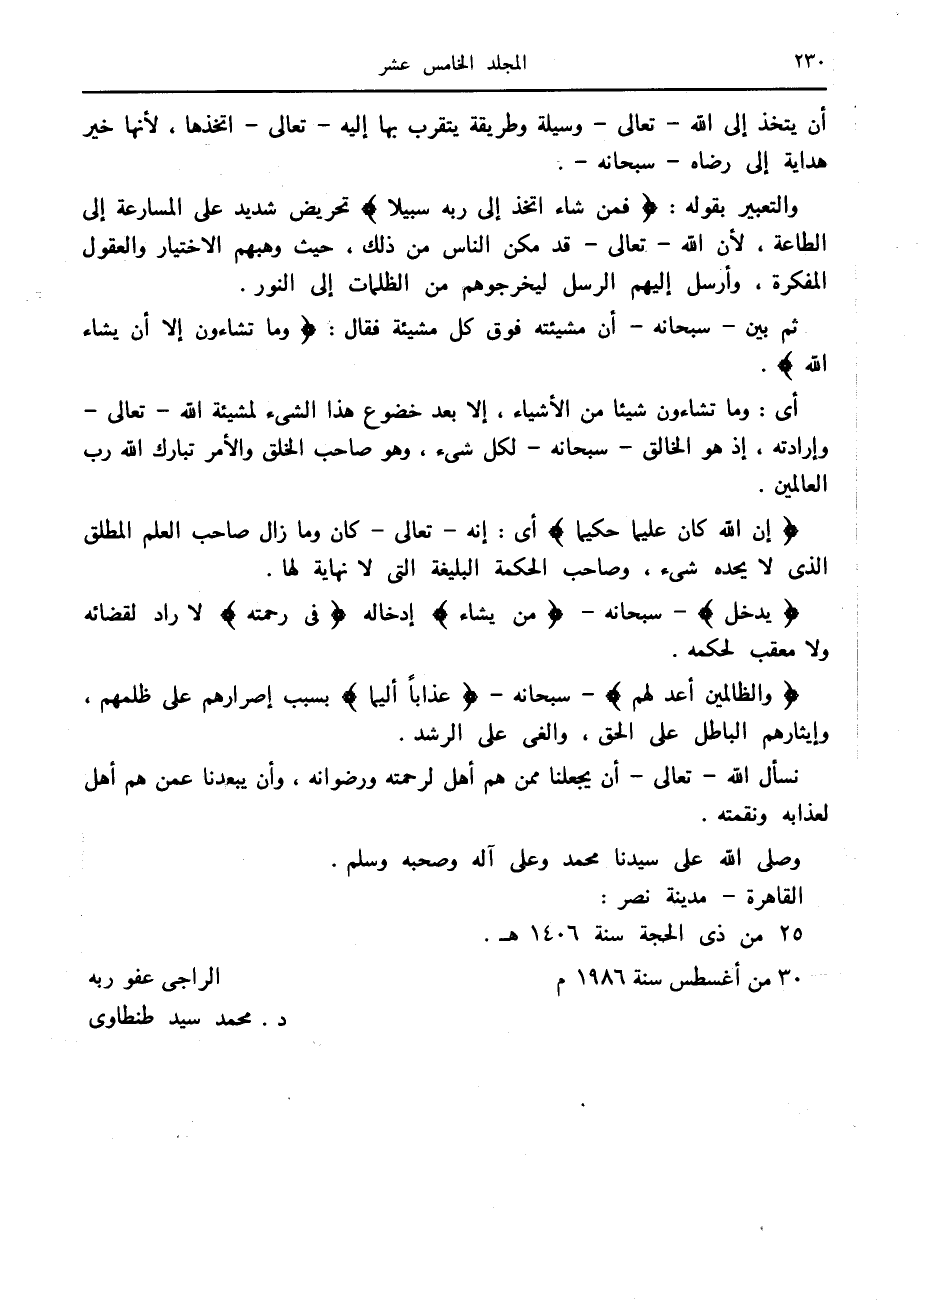 ٢٣٠ المجلد الخامس عشر
أن يتخذ إلى الله – تعالى – وسيلة وطريقة يتقرب بها إليه – تعالى – اتخذها ، لأنها خير
هداية إلى رضاه – سبحانه – .
والتعبير بقوله : ﴿ فمن شاء اتخذ إلى ربه سبيلا ﴾ تحريض شديد على المسارعة إلى
الطاعة ، لأن الله – تعالى – قد مكن الناس من ذلك ، حيث وهبهم الاختيار والعقول
المفكرة ، وأرسل إليهم الرسل ليخرجوهم من الظلمات إلى النور .
ثم بين – سبحانه – أن مشيئته فوق كل مشيئة فقال : ﴿ وما تشاءون إلا أن يشاء
الله ﴾ .
أى : وما تشاءون شيئا من الأشياء ، إلا بعد خضوع هذا الشىء لمشيئة الله – تعالى –
وإرادته ، إذ هو الخالق – سبحانه – لكل شىء ، وهو صاحب الخلق والأمر تبارك الله رب
العالمين .
﴿ إن الله كان عليما حكيما ﴾ أى : إنه – تعالى – كان وما زال صاحب العلم المطلق
الذى لا يحده شىء ، وصاحب الحكمة البليغة التى لا نهاية لها .
﴿ يدخل ﴾ – سبحانه – ﴿ من يشاء ﴾ إدخاله ﴿ فى رحمته ﴾ لا راد لقضائه
ولا معقب لحكمه .
﴿ والظالمين أعد لهم ﴾ – سبحانه – ﴿ عذاباً أليما ﴾ بسبب إصرارهم على ظلمهم ،
وإيثارهم الباطل على الحق ، والغى على الرشد .
نسأل الله – تعالى – أن يجعلنا ممن هم أهل لرحمته ورضوانه ، وأن يبعدنا عمن هم أهل
لعذابه ونقمته .
وصلى الله على سيدنا محمد وعلى آله وصحبه وسلم .
القاهرة – مدينة نصر :
٢٥ من ذى الحجة سنة ١٤٠٦ هـ .
٣٠ من أغسطس سنة ١٩٨٦ م الراجى عفو ربه
د . محمد سيد طنطاوى